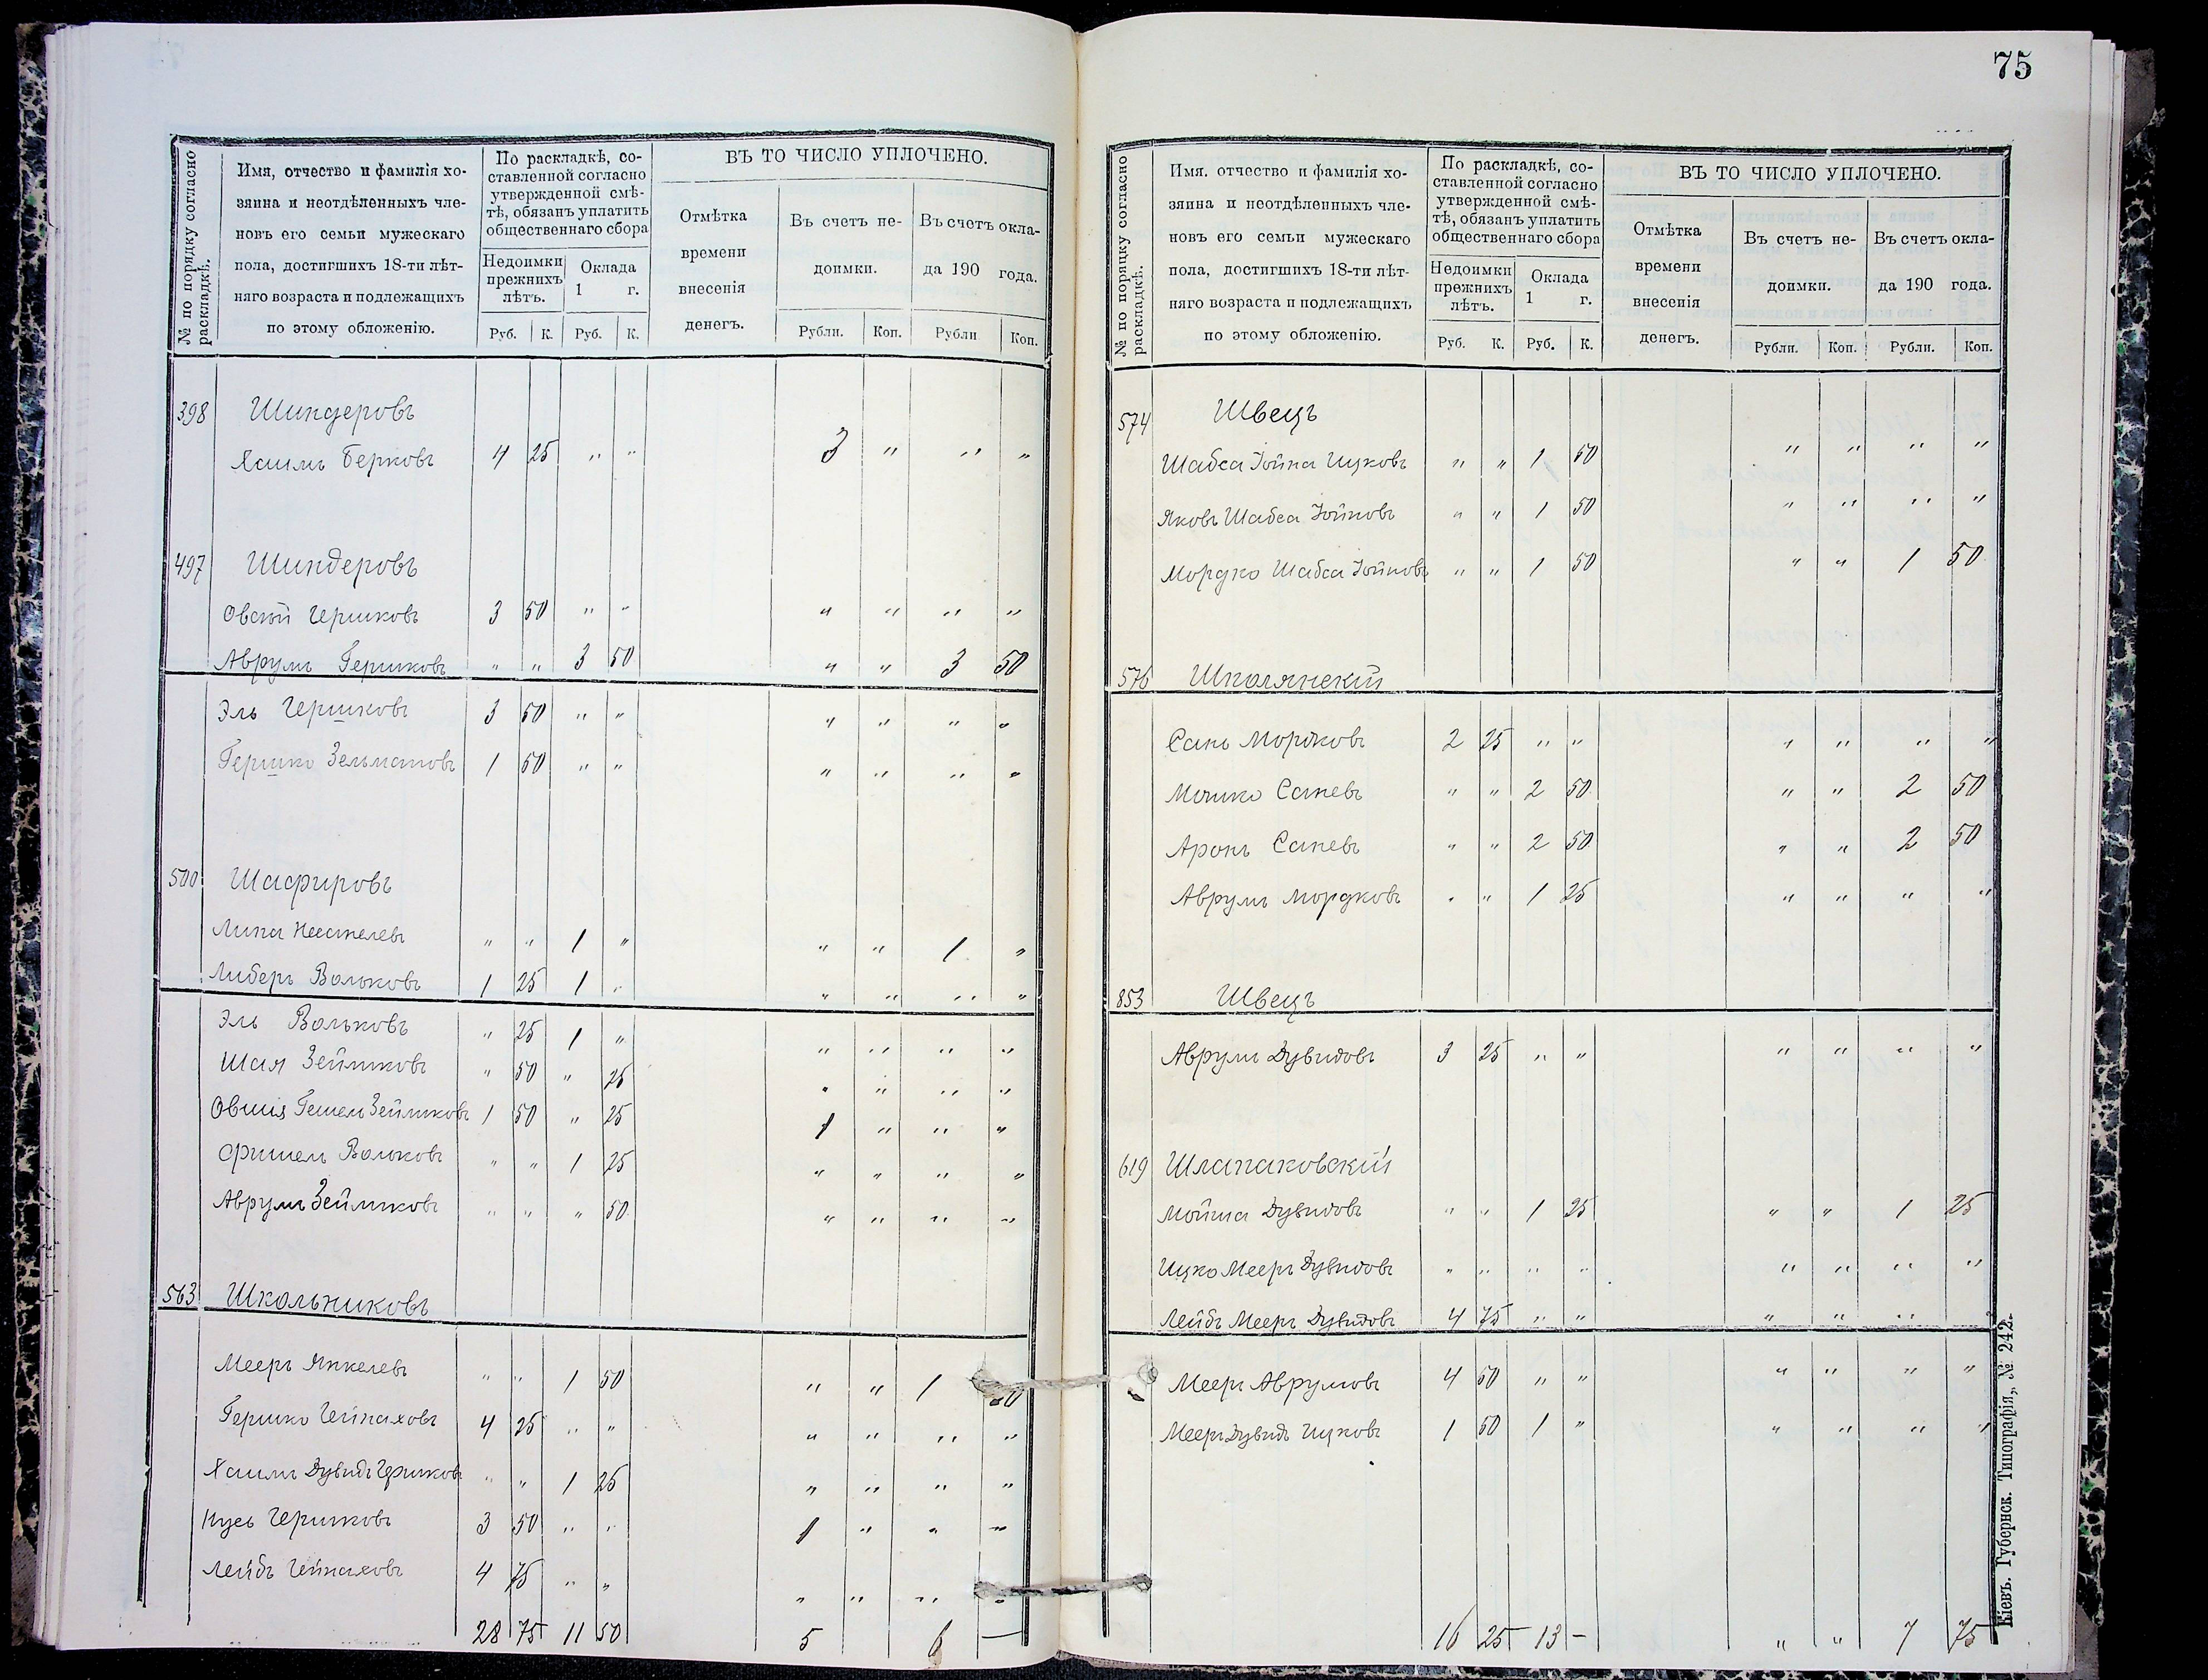 75
№ по порядку согласно раскладкѣ.
Имя, отчество и фамилія хо-
зяина и неотдѣленныхъ чле-
новъ его семьи мужескаго
пола, достигшихъ 18-ти лѣт-
няго возраста и подлежащихъ
по этому обложенію.
По раскладкѣ, со-
ставленной согласно
утвержденной смѣ-
тѣ, обязанъ уплатить
общественнаго сбора
Недоимки
прежнихъ
лѣтъ.
Оклада
1 г.
Руб. К. Руб. К.
ВЪ ТО ЧИСЛО УПЛОЧЕНО.
Отмѣтка
времени
внесенія
денегъ.
Въ счетъ не-
доимки.
Въ счетъ окла-
да 190 года.
Рубли. Коп. Рубли Коп.
398 Шиндеровъ
Хаимъ Берковъ 4 25 " " 3 " " "
497 Шиндеровъ
Овсій Гершковъ 3 50 " " " " " "
Аврумъ Гершковъ " " 3 50 " " 3 50
Эль Гершковъ 3 50 " " " " " "
Гершко Зельмановъ 1 50 " " " " " "
500 Шафировъ
Липа " " 1 " " " 1 "
Либеръ Вольковъ 1 25 1 " " " " "
Эль Вольковъ " 25 1 " " " " "
Шая Зейликовъ " 50 " 25 " " " "
Овшія Гешель Зейликовъ 1 50 " 25 1 " " "
Фишель Вольковъ " " 1 25 " " " "
Аврумъ Зейликовъ " " " 50 " " " "
563 Школьниковъ
Мееръ Янкелевъ " " 1 50 " " 1 50
Гершко Гейнаховъ 4 25 " " " " " "
Хаимъ Дувидъ Гершковъ " " 1 25 " " " "
Нусь Гершковъ 3 50 " " 1 " " "
Лейбъ Гейнаховъ 4 75 " " " " " "
28 75 11 50 5 6 —
№ по порядку согласно раскладкѣ.
Имя, отчество и фамилія хо-
зяина и неотдѣленныхъ чле-
новъ его семьи мужескаго
пола, достигшихъ 18-ти лѣт-
няго возраста и подлежащихъ
по этому обложенію.
По раскладкѣ, со-
ставленной согласно
утвержденной смѣ-
тѣ, обязанъ уплатить
общественнаго сбора
Недоимки
прежнихъ
лѣтъ.
Оклада
1 г.
Руб. К. Руб. К.
ВЪ ТО ЧИСЛО УПЛОЧЕНО.
Отмѣтка
времени
внесенія
денегъ.
Въ счетъ не-
доимки.
Въ счетъ окла-
да 190 года.
Рубли. Коп. Рубли. Коп.
574 Швецъ
Шабса Іойна Ицковъ " " 1 50 " " " "
Яковъ Шабса Іойновъ " " 1 50 " " " "
Мордко Шабса Іойновъ " " 1 50 " " 1 50
576 Школянскій
Сань Мордковъ 2 25 " " " " " "
Мошко Саневъ " " 2 50 " " 2 50
Аронъ Саневъ " " 2 50 " " 2 50
Аврумъ Мордковъ " " 1 25 " " " "
853 Швецъ
Аврумъ Дувидовъ 3 25 " " " " " "
619 Шлапаковскій
Мойша Дувидовъ " " 1 25 " " 1 25
Ицко Мееръ Дувидовъ " " " " " " " "
Лейбъ Мееръ Дувидовъ 4 75 " " " " " "
Мееръ Аврумовъ 4 50 " " " " " "
Мееръ Дувидъ Ицковъ 1 50 1 " " " " "
16 25 13 — " " 7 75
Кіевъ. Губернск. Типографія, № 242.